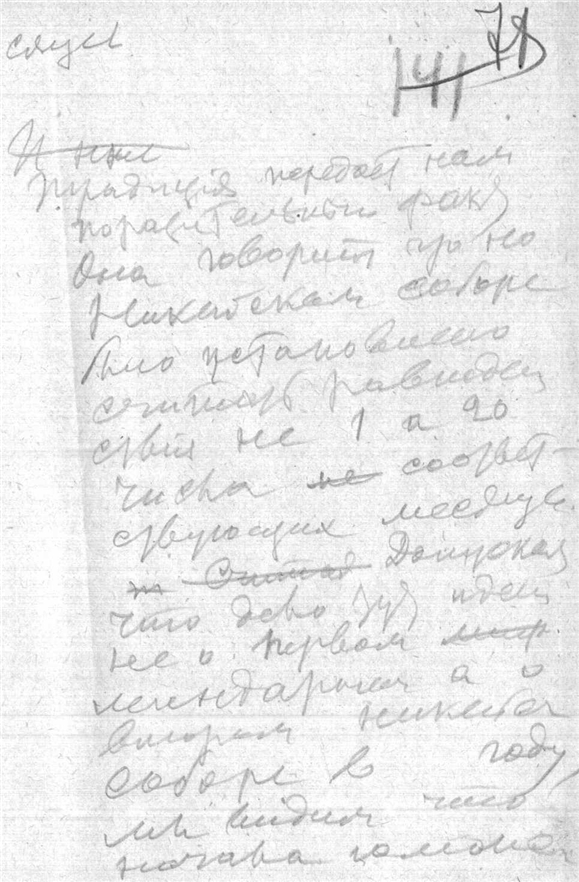 78
141
И ны
Традиція передает нам
поразительный факт
Она говорит что на
Никейском соборе
было установлено
считать равноден
ствия не 1 а 20
числа не соответ-
ствующих месяцев.
Допуская
что дело тут идет
не о первом миф
легендарном а о
втором никейск
соборе в году
мы видим что
начала